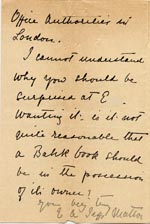 Office Authorities in
London.
I cannot understand
why you should be
surprised at E.
wanting it: is it not
quite reasonable that
a Batak book should
be in the possession
of its owner?